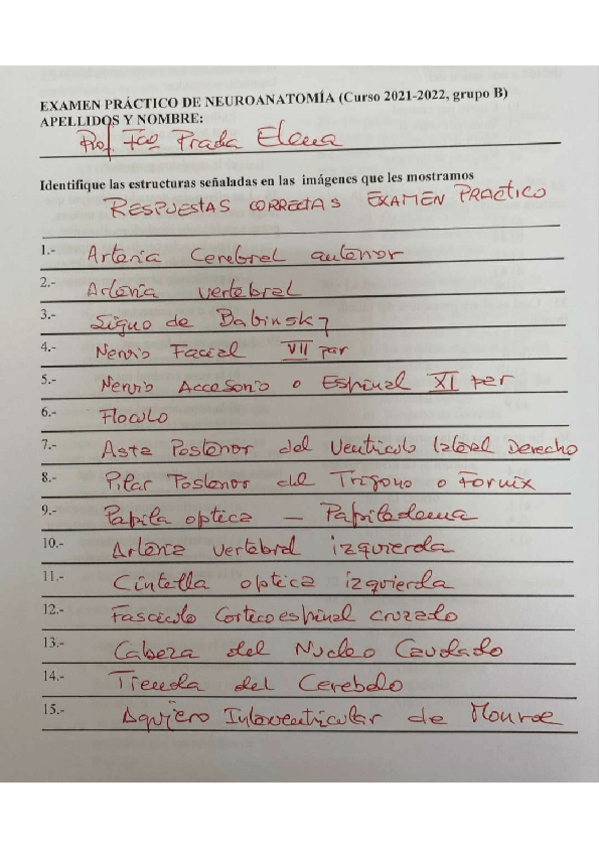 EXAMEN PRÁCTICO DE NEUROANATOMÍA (Curso 2021-2022, grupo B)
APELLIDOS Y NOMBRE:
Prof. Fco Prada Elena
Identifique las estructuras señaladas en las imágenes que les mostramos
RESPUESTAS CORRECTAS EXAMEN PRACTICO
1.- Arteria Cerebral anterior
2.- Arteria vertebral
3.- Signo de Babinsky
4.- Nervio Facial VII par
5.- Nervio Accesorio o Espinal XI par
6.- Floculo
7.- Asta Posterior del Ventriculo lateral Derecho
8.- Pilar Posterior del Trigono o Fornix
9.- Papila optica — Papiledema
10.- Arteria vertebral izquierda
11.- Cintilla optica izquierda
12.- Fasciculo Corticoespinal cruzado
13.- Cabeza del Nucleo Caudado
14.- Tienda del Cerebelo
15.- Agujero Interventricular de Monroe